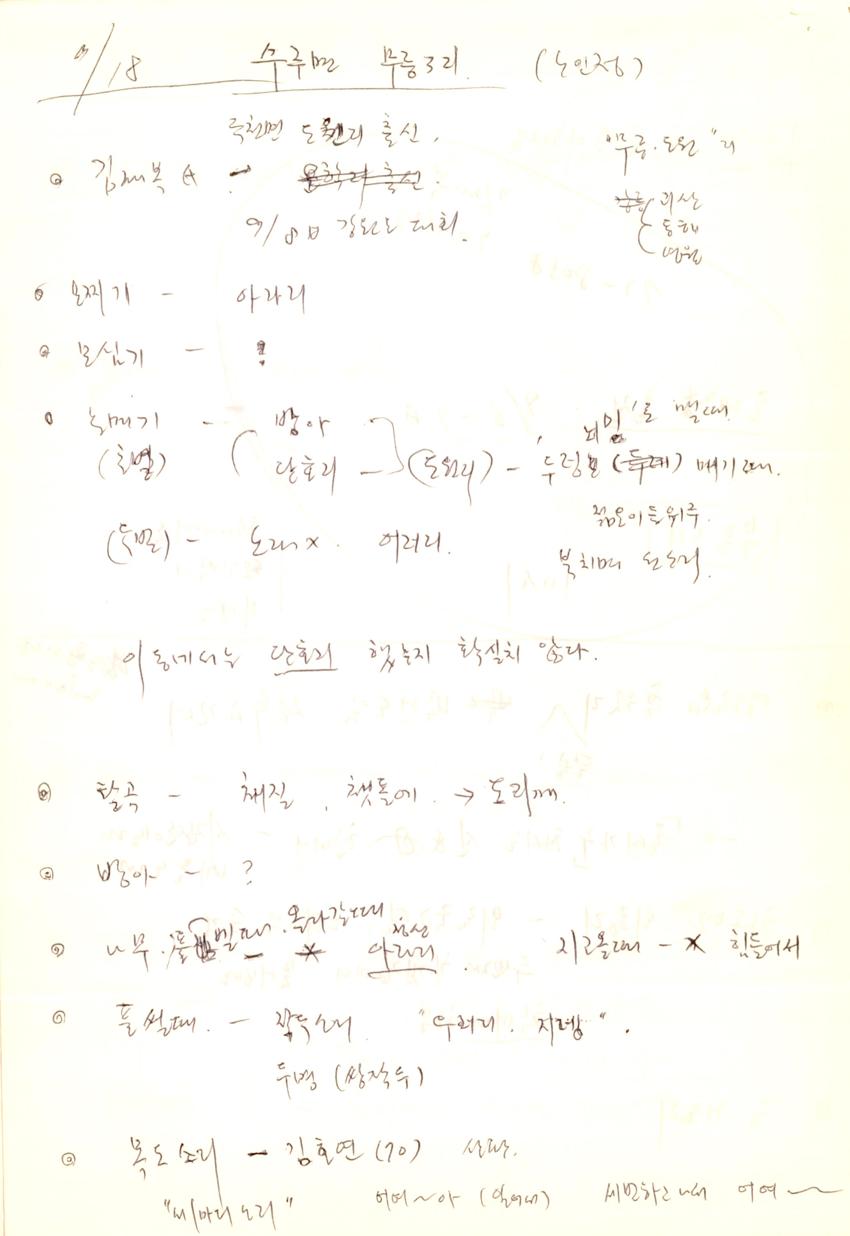 9/18 수주면 무릉3리. (노인정)
극천면 도원리 출신.
"무릉.도원"리
◎ 김재복 A - 운학리 출신.
괴산
동해
영월
9/8日 강원도 대회.
◎ 모찌기 - 아라리
◎ 모심기 - ?
◎ 논매기 - 방아
(초벌) 단호리 - (도원리) - 두렁 (두레) 매기때.
'뇌임'로 맬때.
젊은이들위주.
(두벌) - 노래x. 어러리.
북치며 논소리.
이 동네서는 단호리 했는지 확실치 않다.
◎ 탈곡 - 채질, 챗돌에. → 도리깨.
◎ 방아 - ?
◎ 나무.풀 벨때.올라갈때 - x 아라리. 지고올때 - x 힘들어서
◎ 풀썰때. - 작두소리. "우러리. 지렝".
두명 (쌍작두)
◎ 목도소리 - 김호연(70) 산판.
어여~아 (일어내) 세번하고나서 어여~